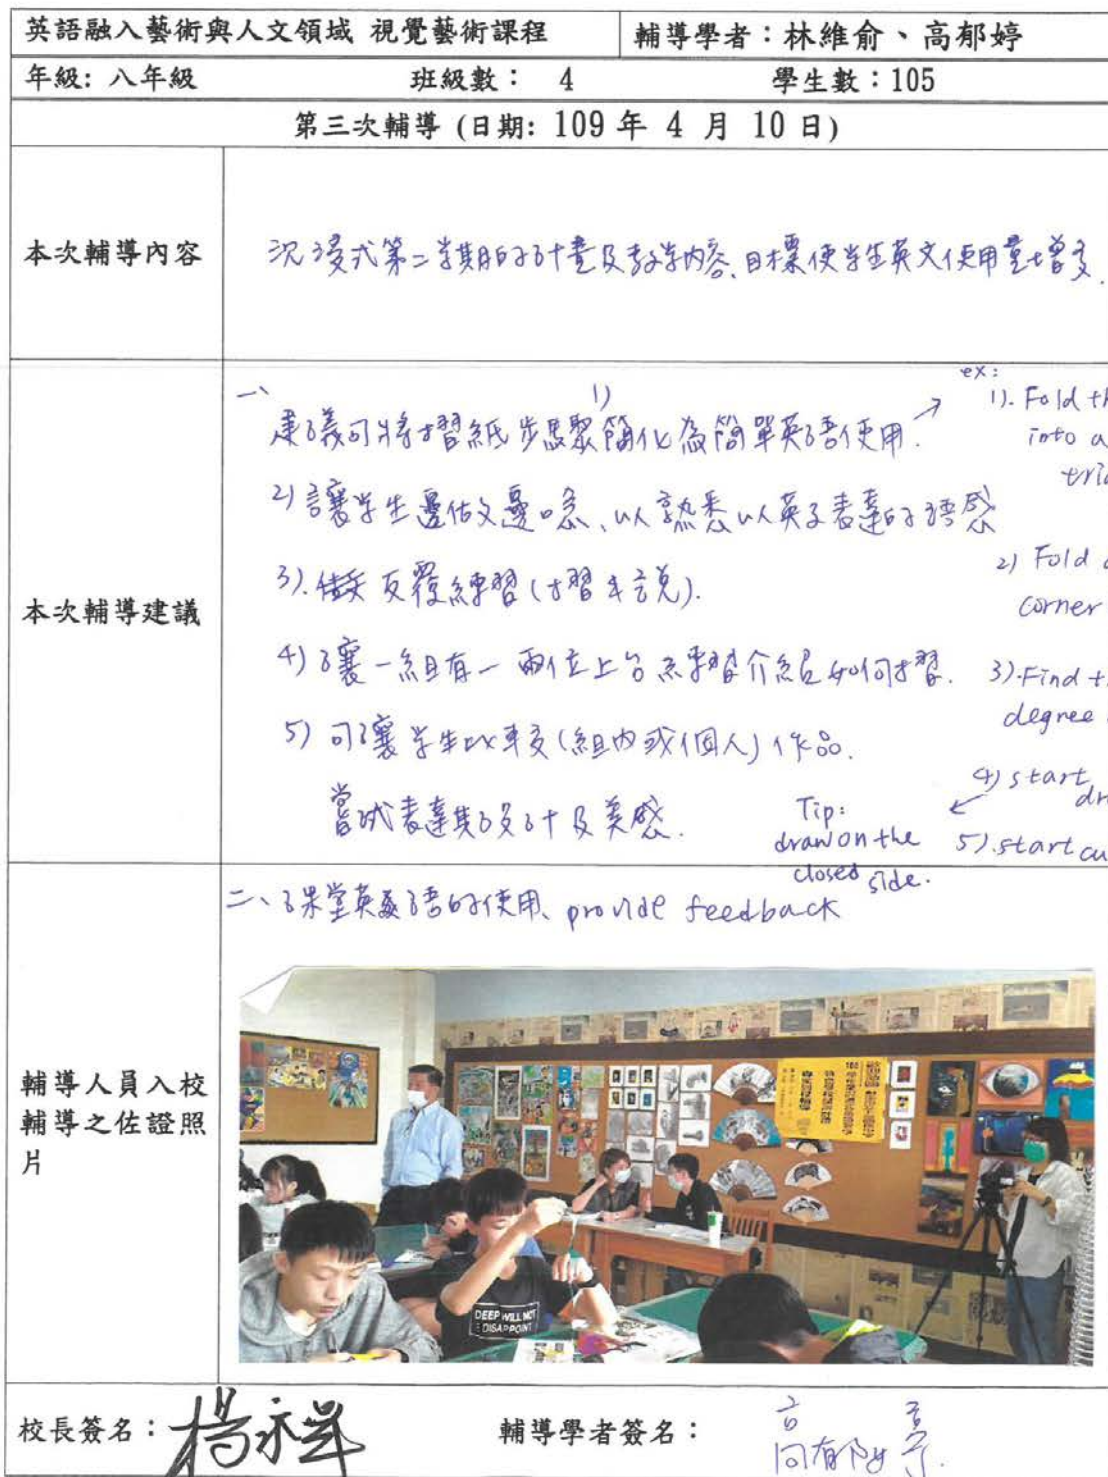 英語融入藝術與人文領域 視覺藝術課程 輔導學者：林維俞、高郁婷
年級: 八年級 班級數： 4 學生數：105
第三次輔導 (日期: 109 年 4 月 10 日)
本次輔導內容
沉浸式第二学期的計畫及教学內容、目標使学生英文使用量增多.
本次輔導建議
一、
1)
建議可將摺紙步驟簡化為簡單英語使用.
2) 讓学生邊做邊唸、以熟悉以英文表達的語感
3). 反覆練習 (摺和說).
4) 讓一組有一兩位上台練習介紹如何摺.
5) 可讓学生比較 (組內或個人) 作品.
嘗試表達其設計及美感.
ex:
1). Fold th
into a
tria
2) Fold
corner
3). Find t
degree
4) start
dr
Tip:
draw on the
closed side.
5). start cu
二、課堂英語的使用、provide feedback
輔導人員入校
輔導之佐證照
片
DEEP WILL NOT
DISAPPOINT
校長簽名：楊永祥 輔導學者簽名：
高郁婷